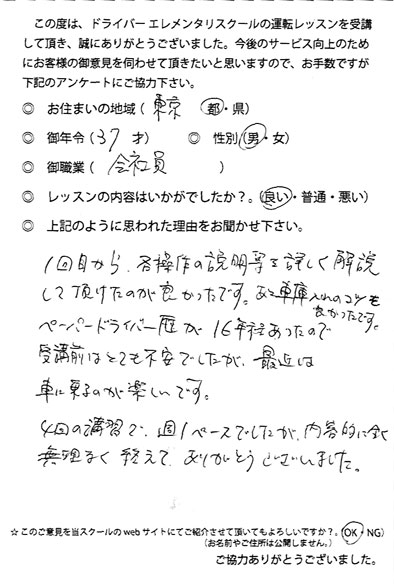 この度は、ドライバー エレメンタリスクールの運転レッスンを受講
して頂き、誠にありがとうございました。今後のサービス向上のため
にお客様の御意見を伺わせて頂きたいと思いますので、お手数ですが
下記のアンケートにご協力下さい。
◎ お住まいの地域 ( 東京 都・県)
◎ 御年令 ( 37 才) ◎ 性別 (男・女)
◎ 御職業 ( 会社員 )
◎ レッスンの内容はいかがでしたか?。(良い・普通・悪い)
◎ 上記のように思われた理由をお聞かせ下さい。
1回目から、各操作の説明等を詳しく解説
して頂けたのが良かったです。あと車庫入れのコツも
良かったです。
ペーパードライバー歴が16年程あったので
受講前はとても不安でしたが、最近は
車に乗るのが楽しいです。
4回の講習で、週1ペースでしたが、内容的に全く
無理なく終えて、ありがとうございました。
☆このご意見を当スクールの web サイトにてご紹介させて頂いてもよろしいですか?。(OK・NG)
(お名前やご住所は公開しません。)
ご協力ありがとうございました。